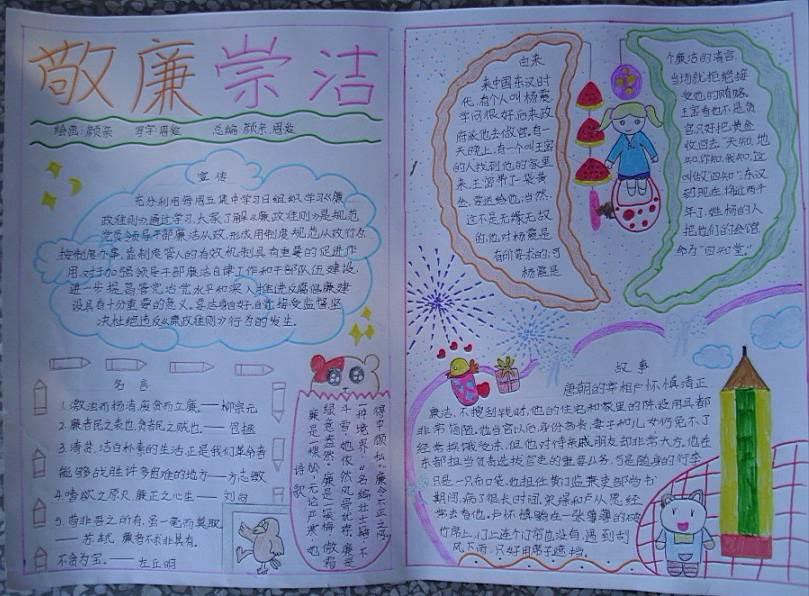 敬廉崇洁
绘画:颜亲 写字:周蕊 总编:颜亲.周蕊
宣传
充分利用每周五集中学习日组织学习《廉
政准则》,通过学习,大家了解《廉政准则》是规范
党员领导干部廉洁从政,形成用制度规范从政行为
按制度办事,靠制度管人的有效机制具有重要的促进作
用.对于加强领导干部廉洁自律工作和干部队伍建设,
进一步提高管党治党水平和深入推进反腐倡廉建
设具有十分重要的意义.
决杜绝违反《廉政准则》行为的发生.
名言
1.激浊而扬清,废贪而立廉.——柳宗元
2.廉者民之表也,贪者民之贼也.——包拯
3.清贫,洁白朴素的生活,正是我们革命者
能够战胜许多困难的地方——方志敏
4.嗜欲之原灭,廉正之心生——刘勰
5.苟非吾之所有,虽一毫而莫取.
——苏轼 廉者不求非其有.
不贪为宝.——左丘明
诗歌
由来
来中国东汉时
代,有个人叫杨震
学问很好,后来政
府派他去做官.有一
天晚上,有一个叫王密
的人找到他的家里
来,王密带了一袋黄
金,要送给他,当然,
这不是无缘无故
的,他对杨震是
有所要求的,可
杨震是
个廉洁的清官,
当场就拒绝接
受他的贿赂,
王密看他不是贪
官只好把黄金
收回去."天知,地
知,你知,我知",这
叫做"四知".东汉
到现在,将近两千
年了,姓杨的人
把他们的会馆
命为"四知堂".
故事
唐朝的宰相卢怀慎清正
廉洁,不搜刮钱财,他的住宅和家里的陈设用具都
非常简陋.他当官以后,身份高贵,妻子和儿女仍免不了
经常挨饿受冻,但他对待亲戚朋友却非常大方,他在
东都担当负责选拔官吏的重要公务,可是随身的行李
只是一只布口袋.他担任黄门监兼吏部尚书
期间,病了很长时间.宋璟和卢从愿经
常去看他.卢怀慎躺在一张薄薄的破
竹席上,门上连个门帘也没有,遇到刮
风下雨,只好用席子遮挡.